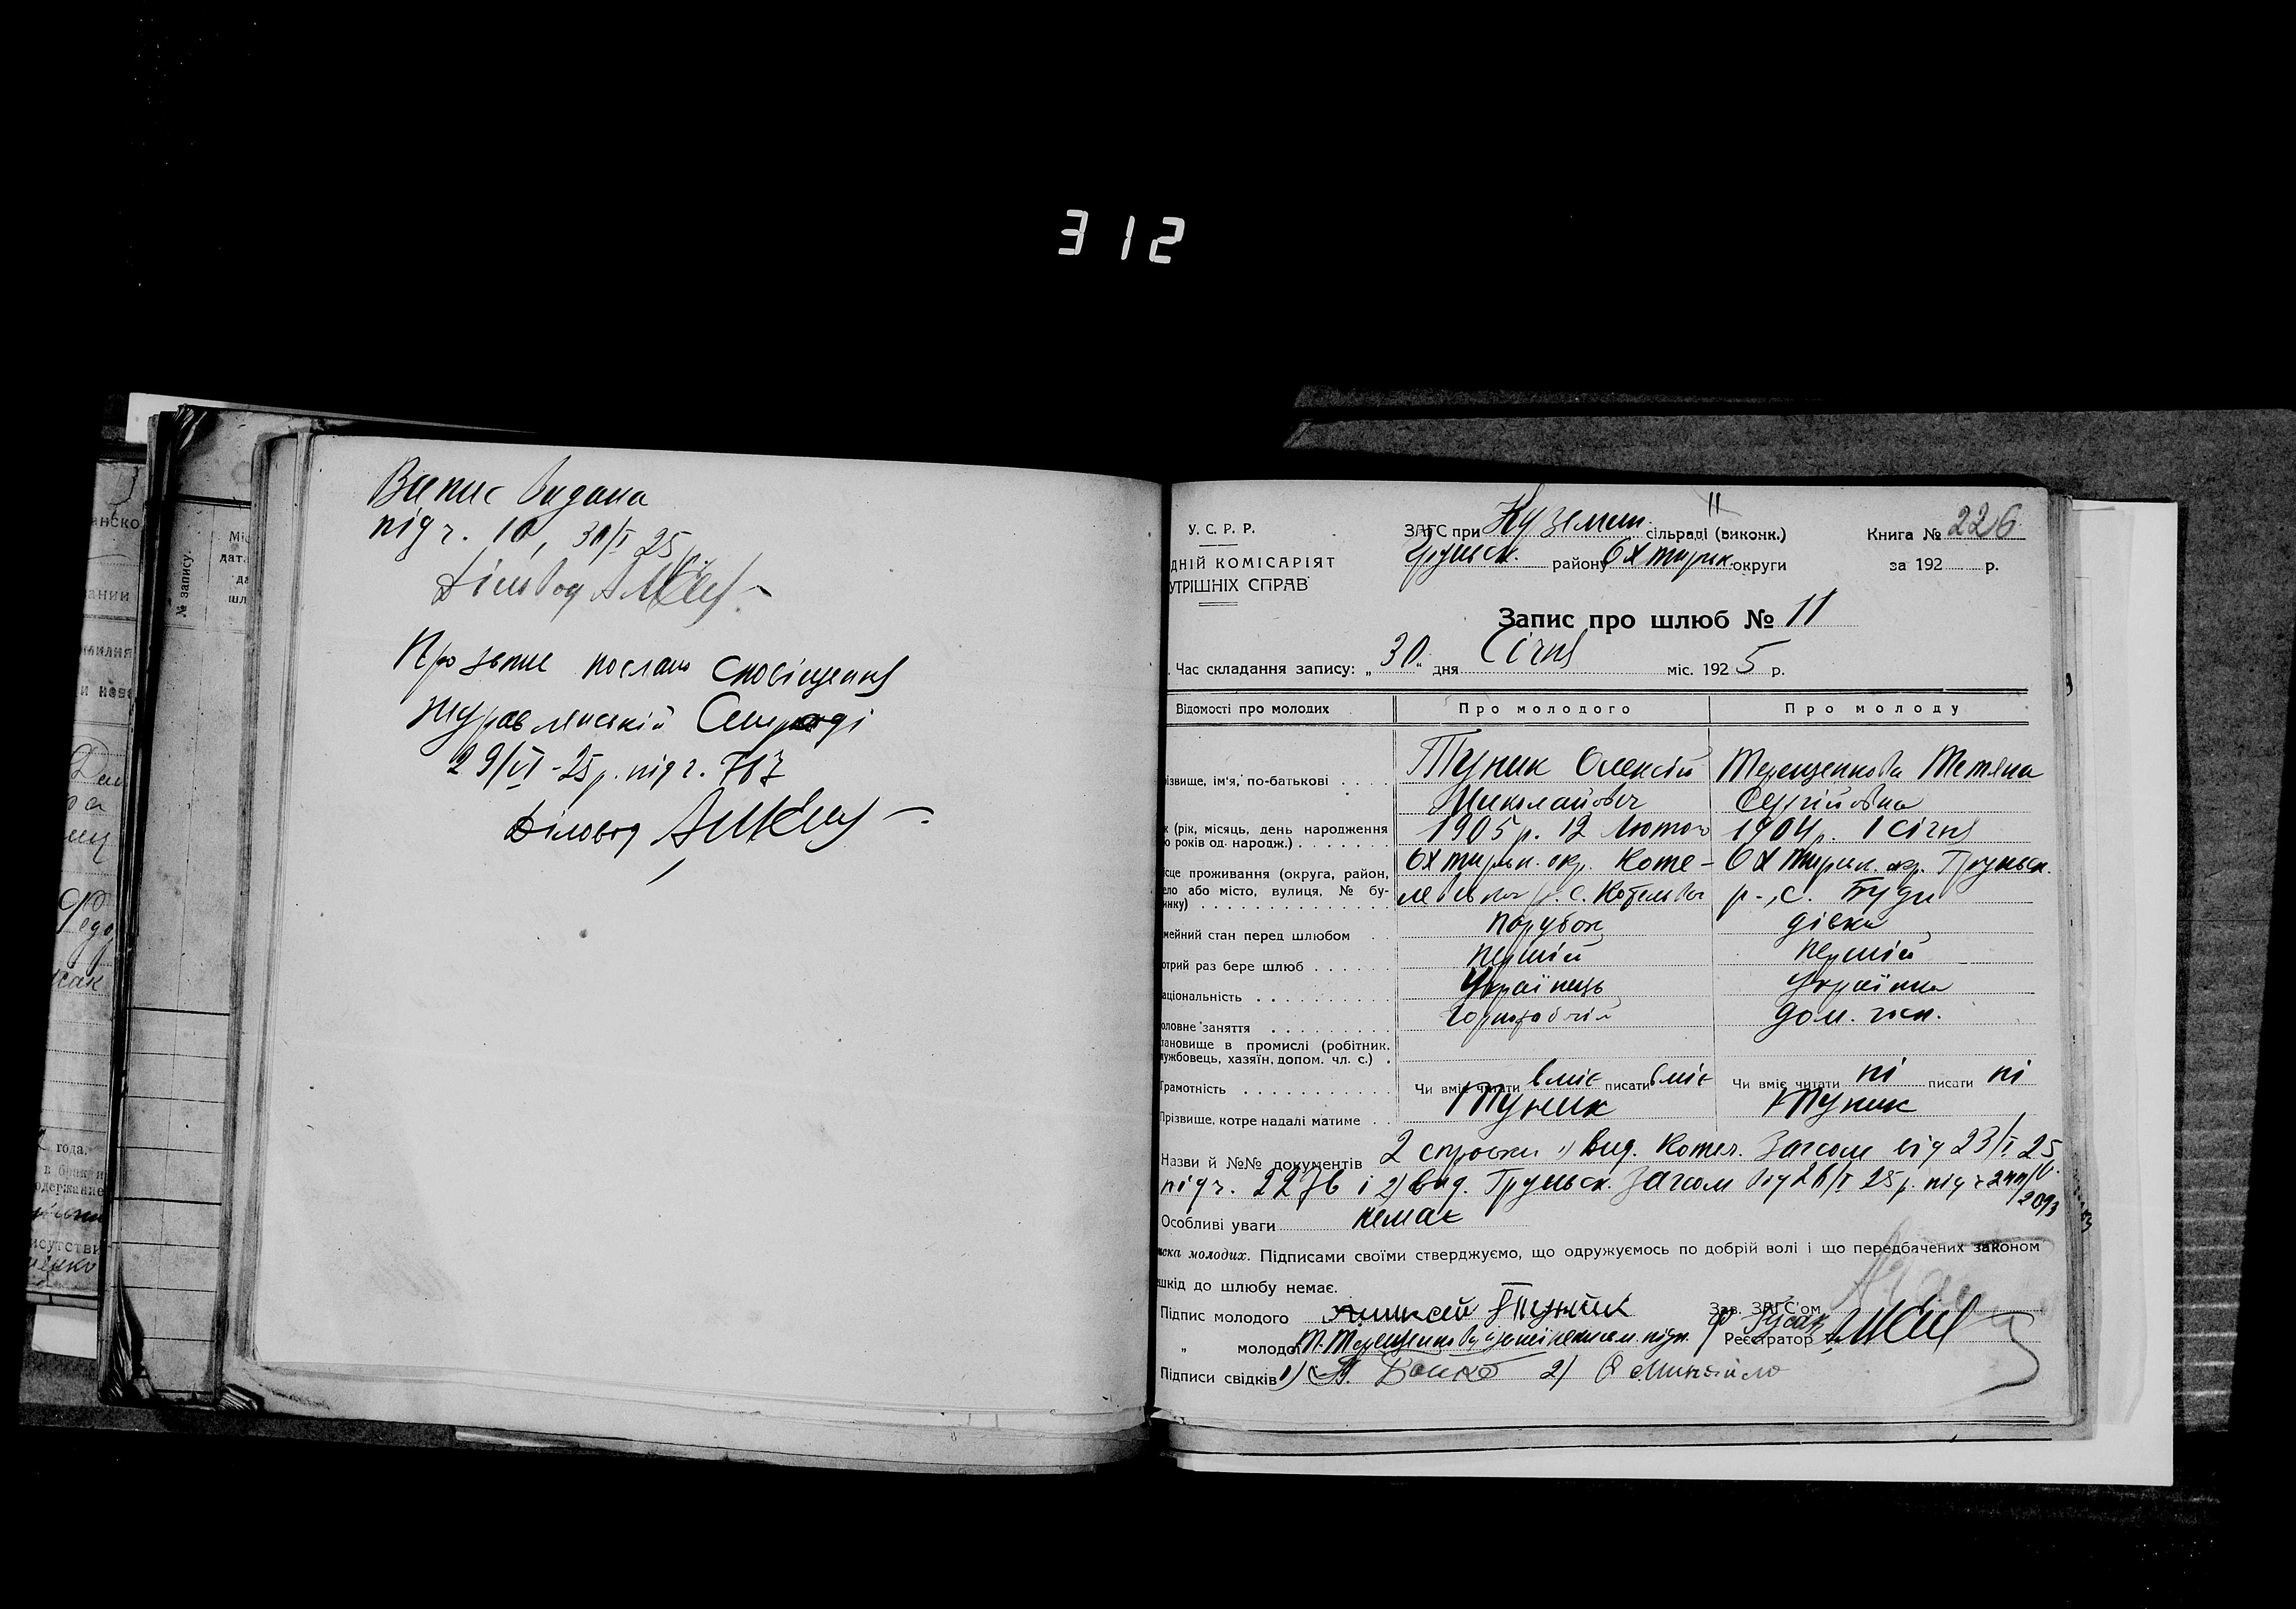 312
анско
ании
милия
и нов
Дан
Федо
сак
года.
в браки
одержание
исутстви
№ запису.
Міс
дат
да
шл
Випис видана
під ч. 10, 30/I 25
Діловод
Про запис послано сповіщення
Журавлянській Сільраді
29/VI - 25 р. під ч. 787
Діловод
11
У. С. Р. Р.
ЗАГС при Куземин. сільраді (виконк.)
Книга № 226
дній комісаріят
Груньск. району Охтирк. округи
за 192 р.
утрішніх справ
Запис про шлюб № 11
Час складання запису: „30" дня Січня міс. 1925 р.
Відомості про молодих
Про молодого
Про молоду
різвище, ім'я, по-батькові
Туник Олексій
Терещенкова Тетяна
Миколайович
Сергійовна
к (рік, місяць, день народження
о років од. народж.)
1905 р. 12 Лютого
1904 р. 1 Січня
ісце проживання (округа, район,
ело або місто, вулиця, № бу-
инку)
Охтирськ. окр. Коте-
левськ. р. с. Котельва
Охтирськ. окр. Груньск.
р-, с. Буди
мейний стан перед шлюбом
парубок
дівка
отрий раз бере шлюб
перший
перший
аціональність
Українець
Українка
оловне заняття
чорнробочій
дом. госп.
тановище в промислі (робітник,
лужбовець, хазяїн, допом. чл. с.)
Грамотність
Чи вміє читати вміє писати вміє
Чи вміє читати ні писати ні
Прізвище, котре надалі матиме
Туник
Туник
Назви й №№ документів 2 справки 1) Вид. Котел. Загсом від 23/I 25
під ч. 2276 і 2) вид. Груньск. Загсом від 26/I 25 р. під ч
2093
Особливі уваги немає
иска молодих. Підписами своїми стверджуємо, що одружуємось по добрій волі і що передбачених законом
ешкід до шлюбу немає.
Підпис молодого Алексей Туник
Зав. ЗАГС'ом
„ молодої Т. Терещенкова
Реєстратор
Підписи свідків 1) 2)